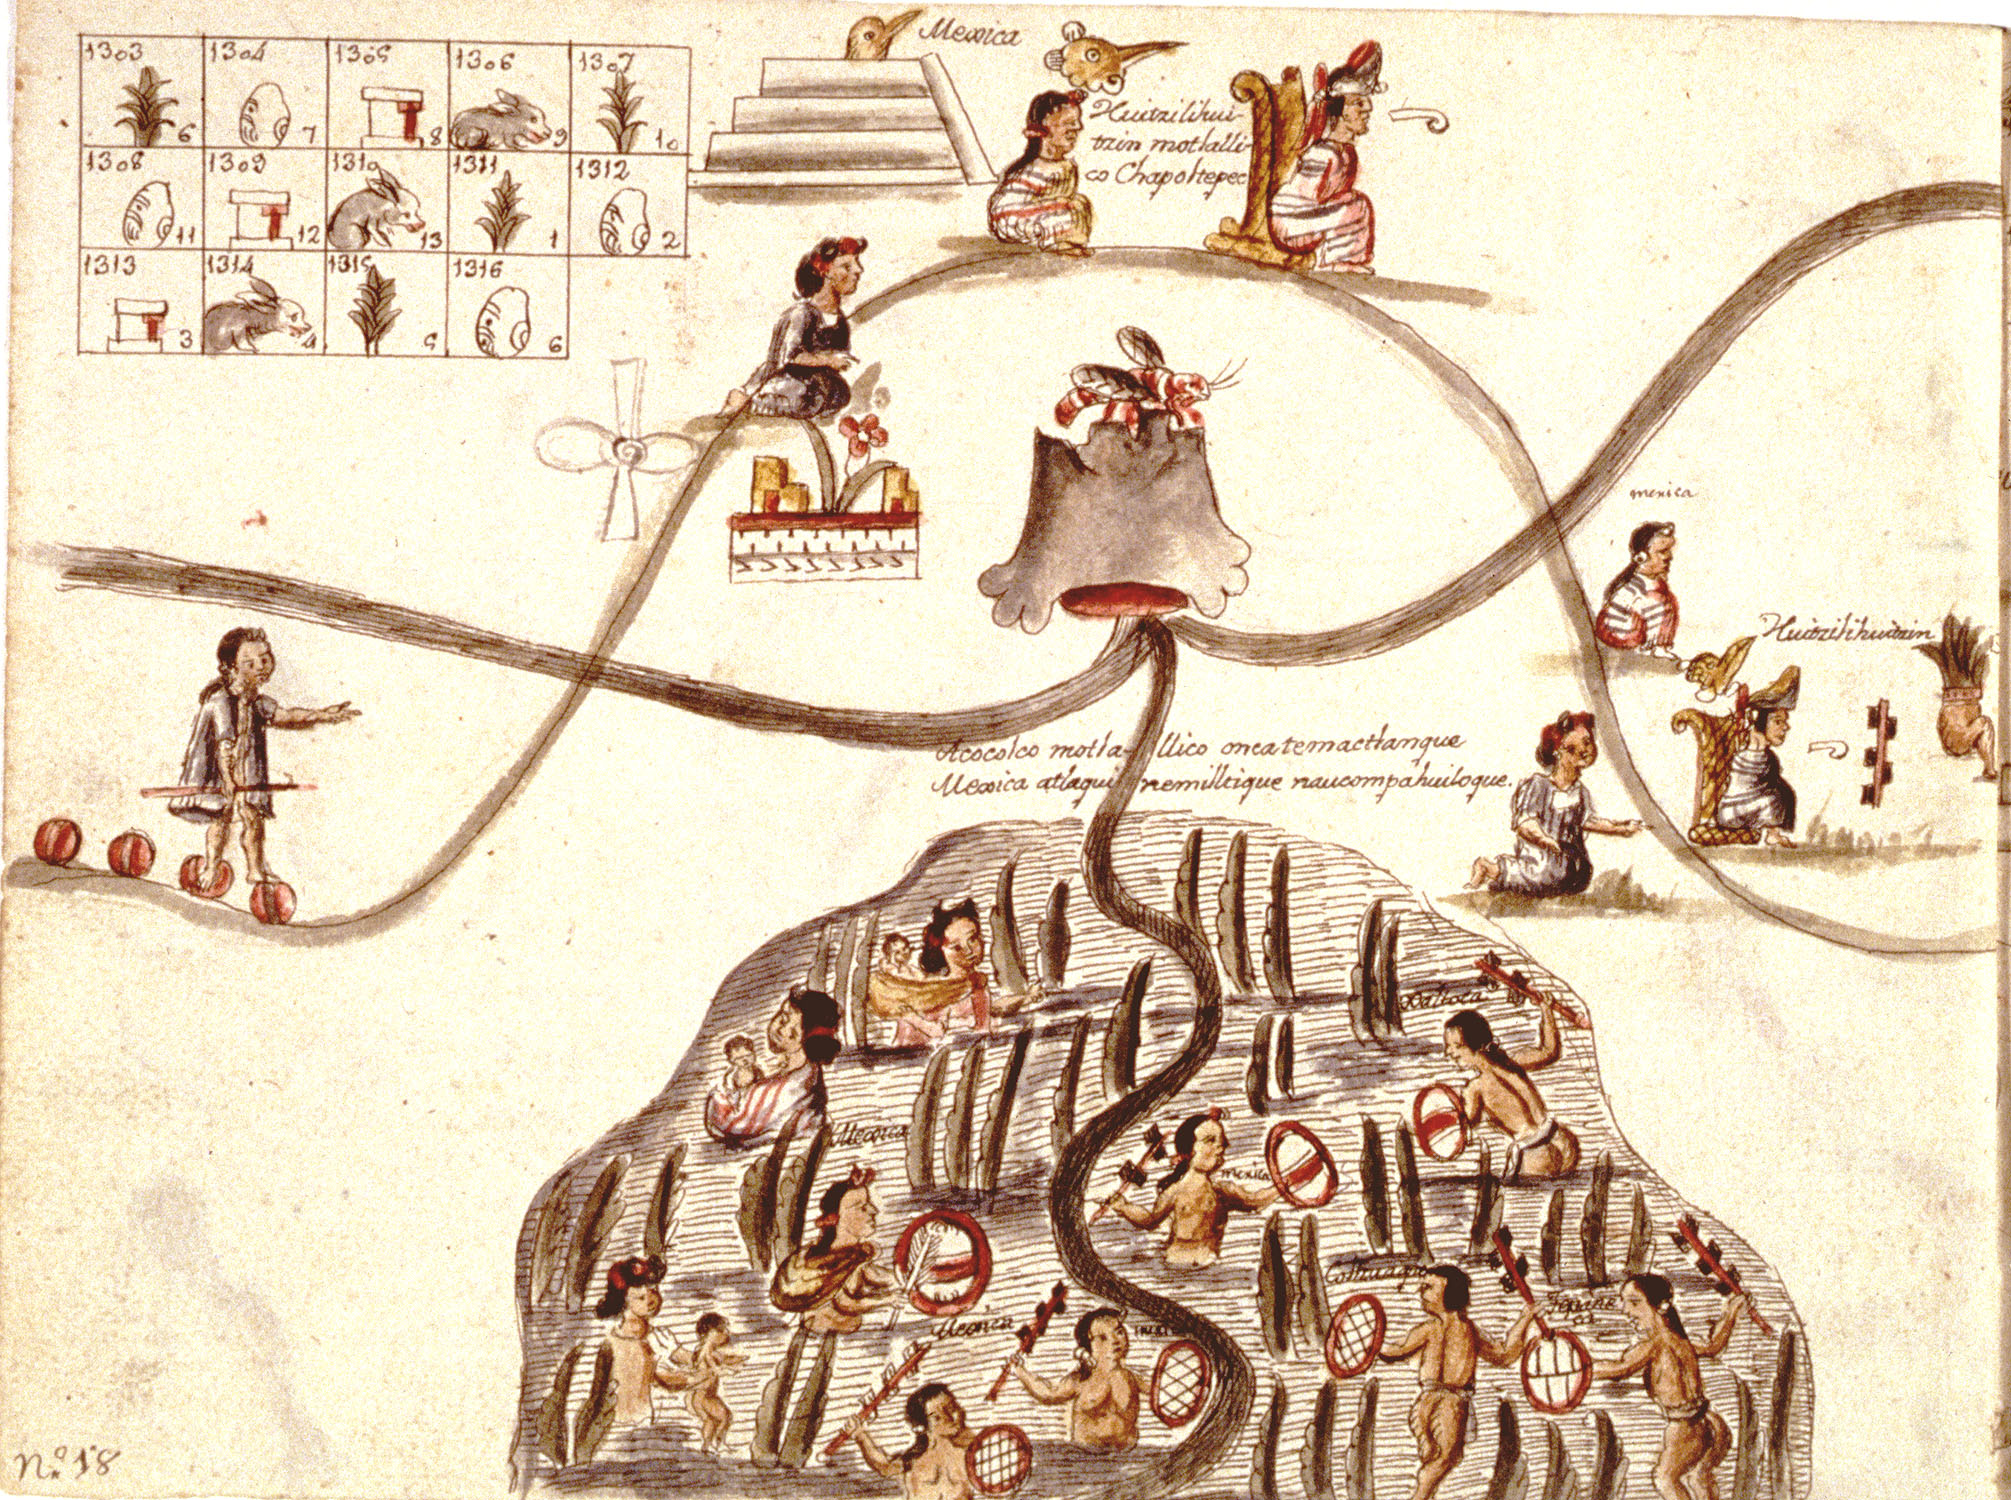 1303 1304 1305 1306 1307
6 7 8 9 10
1308 1309 1310 1311 1312
11 12 13 1 2
1313 1314 1315 1316
3 4 5 6
Mexica
Huitzilihui-
tzin motlalli-
co Chapoltepec
mexica
Huitzilihuitzin
Acocolco motla- llico oncatemactlanque
Mexica atlaqui nemilltique naucompahuiloque.
Xaltoca
Mexica
mexica
Colhuaque
Tepane
ca
Mexica
nº 18